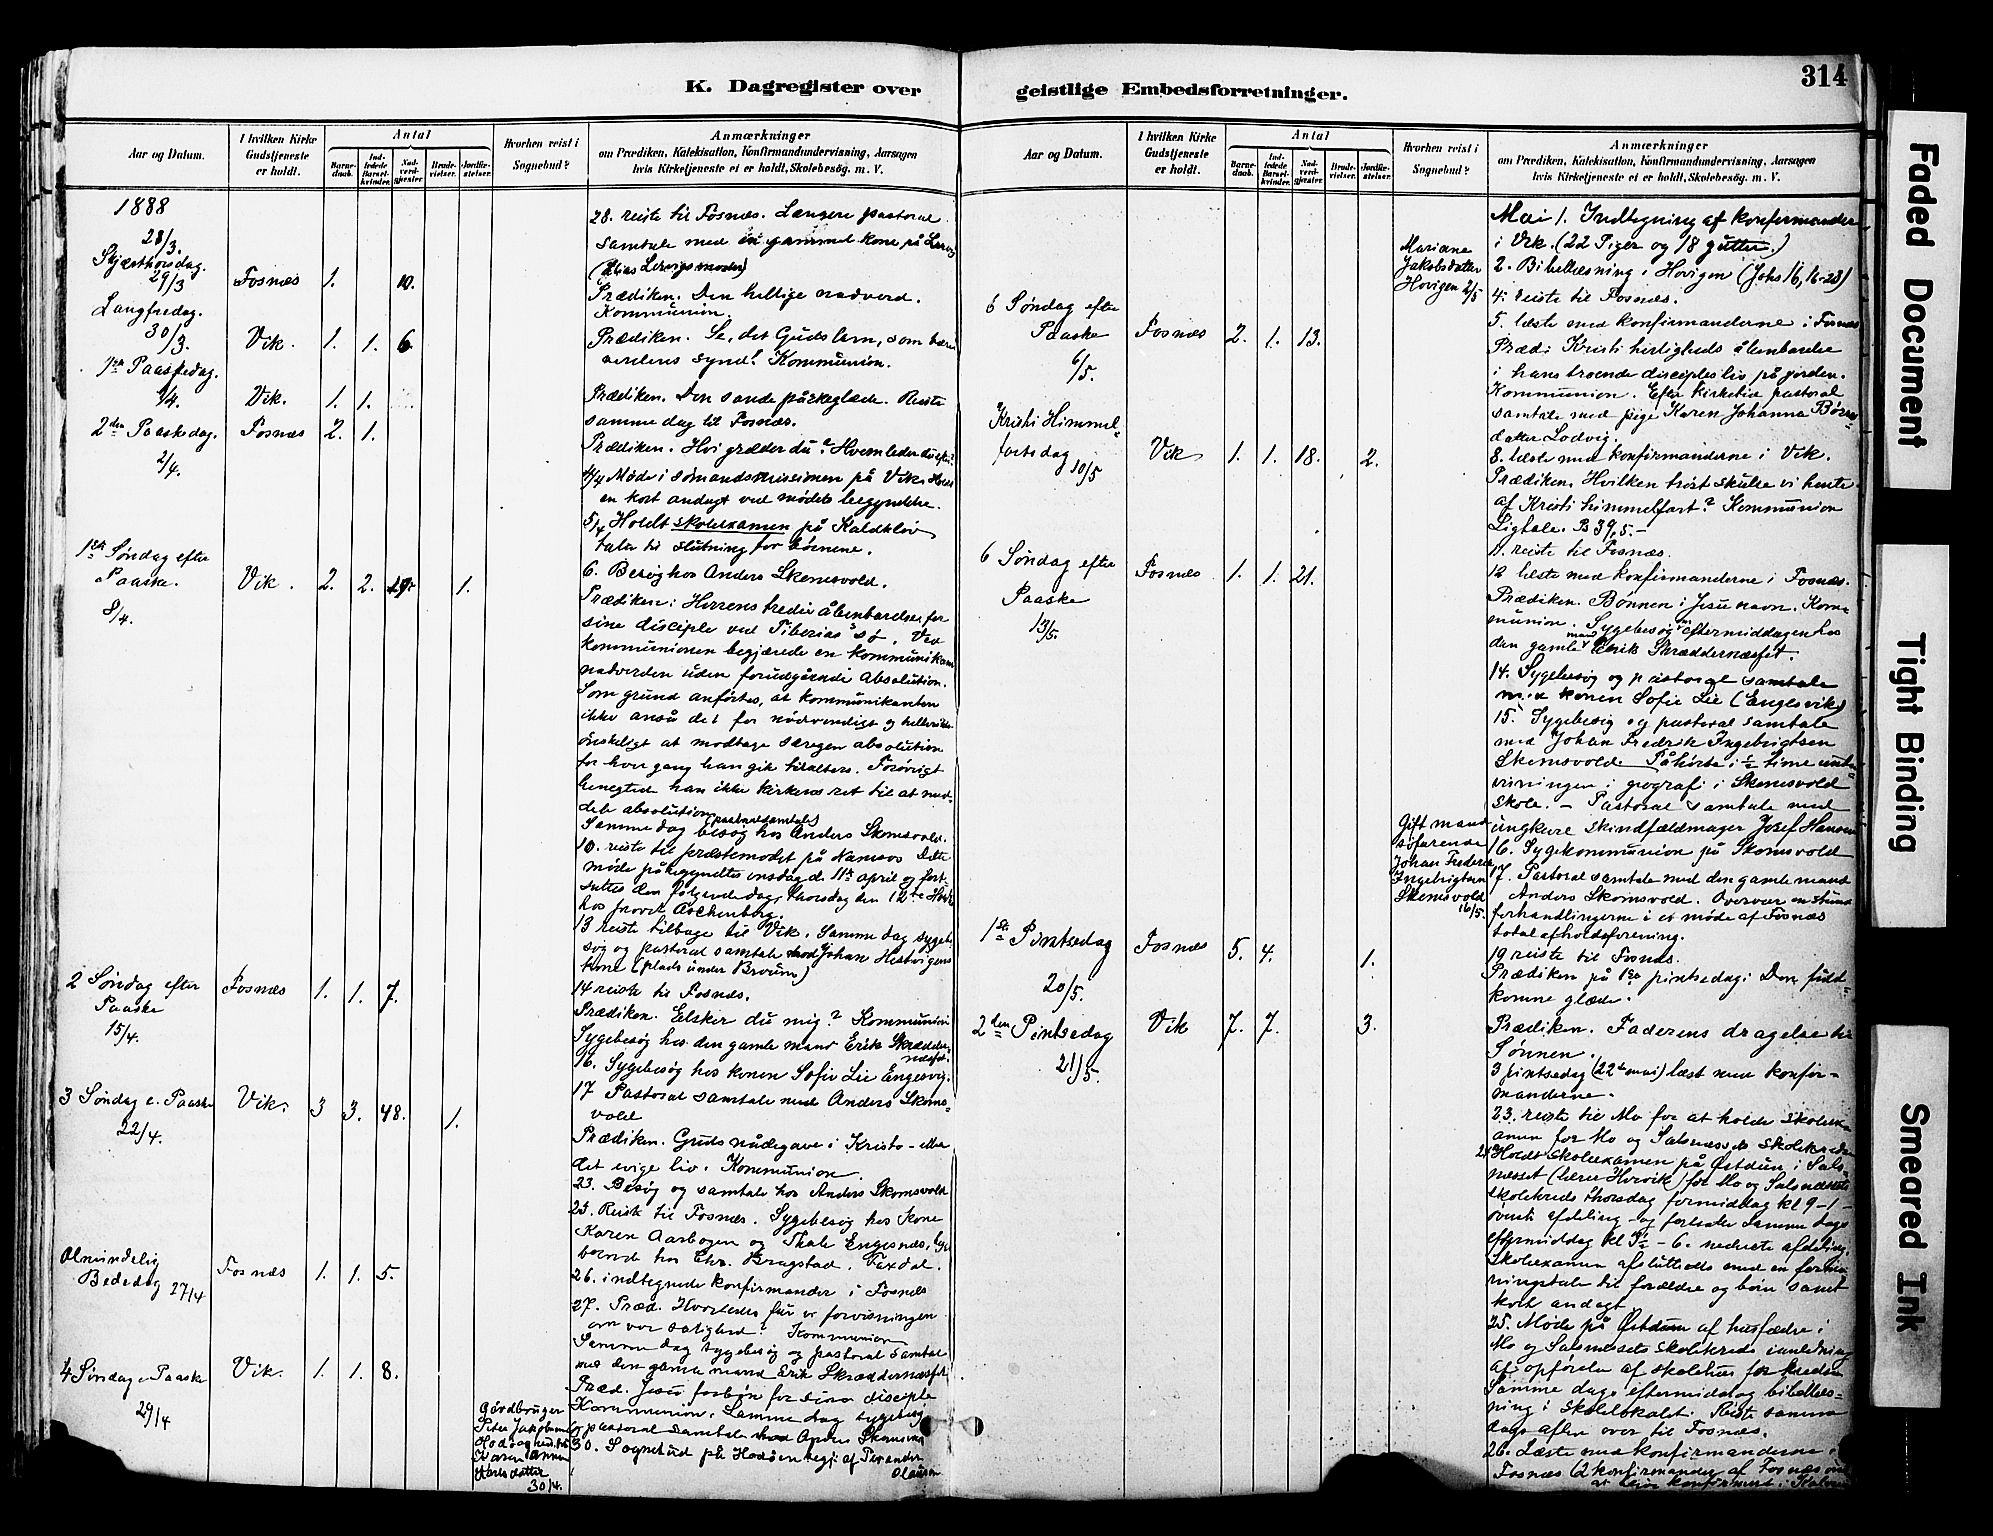 K. Dagregister over
Aar og Datum.
I hvilken Kirke Gudstjeneste er holdt.
Antal
Barnedaab.
Indledede Barselkvinder.
Nadverdgjester
Brudevielser.
Jordfæstelser.
Hvorhen reist i Sognebud?
Anmærkninger
om Prædiken, Katekisation, Konfirmandundervisning, Aarsagen
hvis Kirketjeneste ei er holdt, Skolebesøg. m. V.
1888
28/3.
Skjærthorsdag.
29/3 Fosnæs 1. 10.
Langfredag.
30/3. Vik. 1. 1. 6
1ste Paaskedag.
1/4. Vik. 1. 1.
2den Paaskedag. Fosnæs 2. 1.
2/4.
1ste Søndag efter
Paaske. Vik. 2. 2. 1.
8/4.
2 Søndag efter Fosnæs 1. 1. 7.
Paaske
15/4.
3 Søndag e. Paaske Vik. 3 3. 48. 1.
22/4.
Almindelig
Bededag 27/4 Fosnæs 1. 1. 5.
4 Søndag e Paaske Vik. 1. 1. 8.
29/4
Gårdbruger
Peter Jakobsen
Karen Anna
Karlsdatter
30/4.
28. reiste til Fosnæs. Længere pastoral
samtale med en gammel kone på Lervig
(Elias Lervigs moder)
Prædiken. Den hellige nadverd.
Kommunion.
Prædiken. Se, det Guds lam, som bærer
verdens synd! Kommunion.
Prædiken. Den sande påskeglæde. Reiste
samme dag til Fosnæs.
Prædiken. Hvi græder du? Hvem leder du efter?
4/4 Møde i sømandsmissionen på Vik. Holdt
en kort andagt ved mødets begyndelse.
5/4 Holdt skoleexamen på Kaldklev
taler til slutning for børnene.
6. Besøg hos Anders Skomsvold.
Prædiken: Herrens tredie åbenbarelse for
sine disciple ved Tiberias sø. Ved
kommunionen begjærede en kommunikant
nadverden uden forudgående Absolution.
Som grund anførtes, at kommunikanten
ikke anså det for nødvendigt og heller ikke
ønskeligt at modtage særegen absolution
for hver gang han gik tilalters. Forøvrigt
benegtede han ikke kirkens ret til at med-
dele absolution.
Samme dag besøg (pastoralsamtale) hos Anders Skomsvold.
10. reiste til præstemødet på Namsos Dette
møde påbegyndtes onsdag d. 11te april og fort-
sattes den følgende dag, thorsdag den 12te
hos provst Aschenberg.
13 reiste tilbage til Vik. Samme dag sygebe-
søg og pastoral samtale med Johan Hestvigens
kone (plads under Brauem)
14 reiste til Fosnæs.
Prædiken. Elsker du mig? Kommunion
Sygebesøg hos den gamle mand Erik Skrædder-
næsset.
16. Sygebesøg hos konen Sofie Lie Engesvig.
17 Pastoral samtale med Anders Skoms-
vold
Prædiken. Guds nådegave i Kristo - eller
det evige liv. Kommunion.
23. Besøg og samtale hos Anders Skomsvold
25. Reiste til Fosnæs. Sygebesøg hos kone
Karen Aarbogen og Thale Engesnæs,
boende hos Chr. Bragstad. Faxdal.
26. indtegnede konfirmander i Fosnæs
27. Præd. Hvorledes får vi forvisningen
om vor salighed? Kommunion
Samme dag sygebesøg og pastoral samtale
med den gamle mand Erik Skræddernæsset
Præd. Jesu forbøn for sine disciple
Kommunion. Samme dag sygebesøg
og pastoral samtale med Anders Skomsvold
30. Sognebud på Hodøen
Olausen
geistlige Embedsforretninger.
314
Aar og Datum.
I hvilken Kirke Gudstjeneste er holdt.
Antal
Barnedaab.
Indledede Barselkvinder.
Nadverdgjester
Brudevielser.
Jordfæstelser.
Hvorhen reist i Sognebud?
Anmærkninger
om Prædiken, Katekisation, Konfirmandundervisning, Aarsagen
hvis Kirketjeneste ei er holdt, Skolebesøg. m. V.
Mariane
Jakobsdatter
Hovigen 2/5
6 Søndag efter
Paaske Fosnæs 2. 1. 13.
6/5.
Kristi Himmel-
fartsdag Vik 1. 1. 18. 2.
10/5
6 Søndag efter Fosnæs 1. 1. 21.
Paaske
13/5.
Gift mand
søfarende
Johan Frederik
Ingebrigtsen
Skomsvold
16/5.
1ste Pintsedag Fosnæs 5. 4. 1.
20/5.
2den Pintsedag Vik 7. 7. 3.
21/5.
Mai 1. Indtegning af konfirmander
i Vik. (22 Piger og 18 gutter.)
2. Bibellæsning i Hovigen (Johs 16, 16-23)
4. reiste til Fosnæs.
5. læste med konfirmanderne i Fosnæs
Præd: Kristi herligheds åbenbarelse
i hans troende disciples liv på jorden.
Kommunion. Efter kirketid pastoral
samtale med pige Karen Johanna Børres-
datter Lodvig.
8. læste med konfirmanderne i Vik.
Prædiken. Hvilken trøst skulle vi hente
af Kristi himmelfart? Kommunion
Ligtale. 39,5.-
11. reiste til Fosnæs.
12 læste med konfirmanderne i Fosnæs.
Prædiken. Bønnen i Jesu navn. Kom-
munion. Sygebesøg om eftermiddagen hos
den gamle mand Erik Skræddernæsset.
14. Sygebesøg og pastoral samtale
med konen Sofie Lie (Engesvik)
15. Sygebesøg og pastoral samtale
med Johan Fredrik Ingebrigtsen
Skomsvold Påhørte i ½ time under-
visningen i geografi i Skomsvold
skole. - Pastoral samtale med
ungkare skindfældmager Josef Hansen
16. Sygekommunion på Skomsvold
17. Pastoral samtale med den gamle mand
Anders Skomsvold. Overvar en stund
forhandlingerne i et møde af Fosnæs
totalafholdsforening.
19 reiste til Fosnæs.
Prædiken på 1ste pintsedag: Den fuld-
komne glæde.
Prædiken. Faderens dragelse til
Sønnen.
3 pintsedag (22de mai) læst med konfir-
manderne.
23. reiste til Mo for at holde skoleex-
amen for Mo og Salsnæssets skolekreds
24 Holdt skoleexamen på Østduun i Sals-
næsset for Mo og Salsnæssets
skolekreds thorsdag formiddag kl 9-1 -
øverste afdeling - og fortsatte samme dags
eftermiddag kl 3½ - 6. nederste afdeling.
Skoleexamen afsluttedes med en forma-
ningstale til forældre og børn samt
kort andagt.
25. Møde på Østduun af husfædre i
Mo og Salsnæssets skolekreds i anledning
af opførelse af skolehus for kredsen
Samme dags eftermiddag bibellæs-
ning i skolelokalet. Reiste samme
dags aften over til Fosnæs.
26. Læste med konfirmanderne i
Fosnæs (2 konfirmander af Fosnæs
at blive konfirmeret i
Faded Document
Tight Binding
Smeared Ink